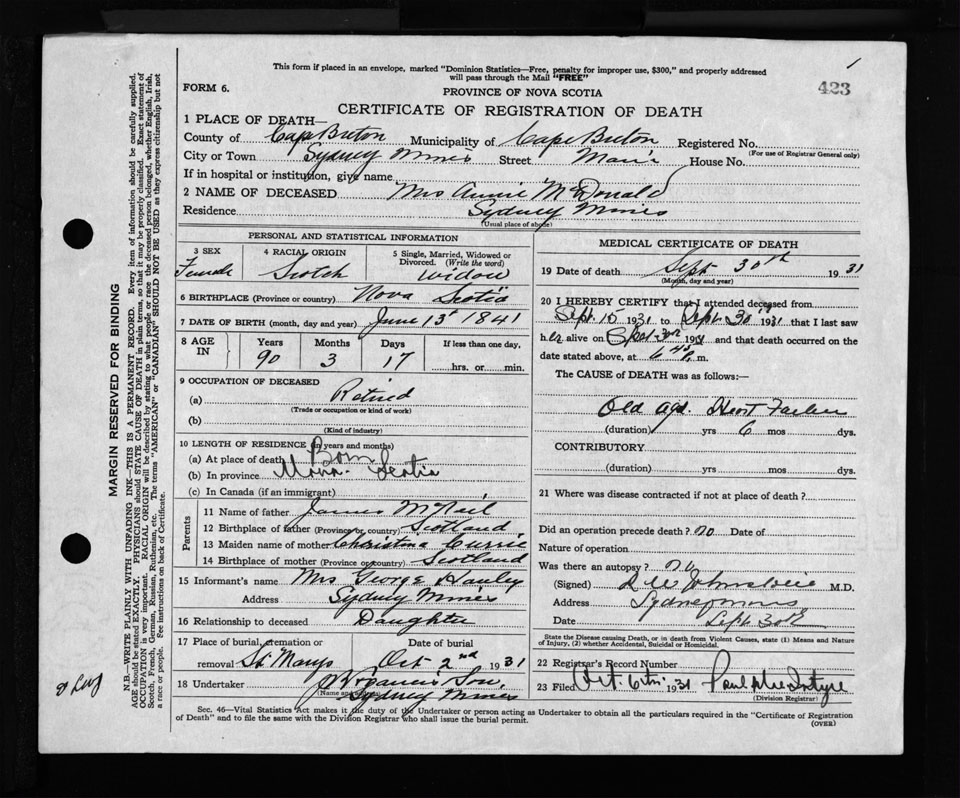 This form if placed in an envelope, marked "Dominion Statistics—Free, penalty for improper use, $300," and properly addressed
will pass through the Mail "FREE"
423
FORM 6.
PROVINCE OF NOVA SCOTIA
CERTIFICATE OF REGISTRATION OF DEATH
1 PLACE OF DEATH—
County of Cape Breton Municipality of Cape Breton Registered No.
(For use of Registrar General only)
City or Town Sydney Mines Street Main House No.
If in hospital or institution, give name
2 NAME OF DECEASED Mrs Annie McDonald
Residence Sydney Mines
(Usual place of abode)
PERSONAL AND STATISTICAL INFORMATION
3 SEX Female
4 RACIAL ORIGIN Scotch
5 Single, Married, Widowed or Divorced. (Write the word) Widow
6 BIRTHPLACE (Province or country) Nova Scotia
7 DATE OF BIRTH (month, day and year) June 13th 1841
8 AGE IN Years 90 Months 3 Days 17 If less than one day, hrs. or min.
9 OCCUPATION OF DECEASED
(a) Retired
(Trade or occupation or kind of work)
(b)
(Kind of industry)
10 LENGTH OF RESIDENCE (in years and months)
(a) At place of death Born
(b) In province Nova Scotia
(c) In Canada (if an immigrant)
Parents
11 Name of father James McNeil
12 Birthplace of father (Province or country) Scotland
13 Maiden name of mother Christina Currie
14 Birthplace of mother (Province or country) Scotland
15 Informant's name Mrs George Hanley
Address Sydney Mines
16 Relationship to deceased Daughter
17 Place of burial, cremation or removal St. Marys Date of burial Oct 2nd 1931
18 Undertaker Son,
(Name and address) Sydney Mines
MEDICAL CERTIFICATE OF DEATH
19 Date of death Sept 30th 1931
(Month, day and year)
20 I HEREBY CERTIFY that I attended deceased from
Sept. 15 1931 to Sept. 30 1931 that I last saw
her alive on Sept 30 1931 and that death occurred on the
date stated above, at 6 m.
The CAUSE OF DEATH was as follows:—
Old age. Heart Failure
(duration) yrs 6 mos dys.
CONTRIBUTORY
(duration) yrs mos dys.
21 Where was disease contracted if not at place of death?
Did an operation precede death? no Date of
Nature of operation
Was there an autopsy? no
(Signed) M.D.
Address Sydney Mines
Date Sept 30th
State the Disease causing Death, or in death from Violent Causes, state (1) Means and Nature
of Injury, (2) whether Accidental, Suicidal or Homicidal.
22 Registrar's Record Number
23 Filed Oct. 6th 1931 Paul McIntyre
(Division Registrar)
Sec. 46—Vital Statistics Act makes it the duty of the Undertaker or person acting as Undertaker to obtain all the particulars required in the "Certificate of Registration
of Death" and to file the same with the Division Registrar who shall issue the burial permit.
(OVER)
MARGIN RESERVED FOR BINDING
N.B.—WRITE PLAINLY WITH UNFADING INK—THIS IS A PERMANENT RECORD. Every item of information should be carefully supplied.
AGE should be stated EXACTLY. PHYSICIANS should STATE CAUSE OF DEATH in plain terms, so that it may be properly classified. Exact statement of
OCCUPATION is very important. RACIAL ORIGIN will be described by stating to what people or race the deceased person belonged, whether English, Irish,
Scotch, French, German, Russian, Ruthenian, etc. The terms "AMERICAN" or "CANADIAN" SHOULD NOT BE USED as they express citizenship but not
a race or people. See instructions on back of Certificate.